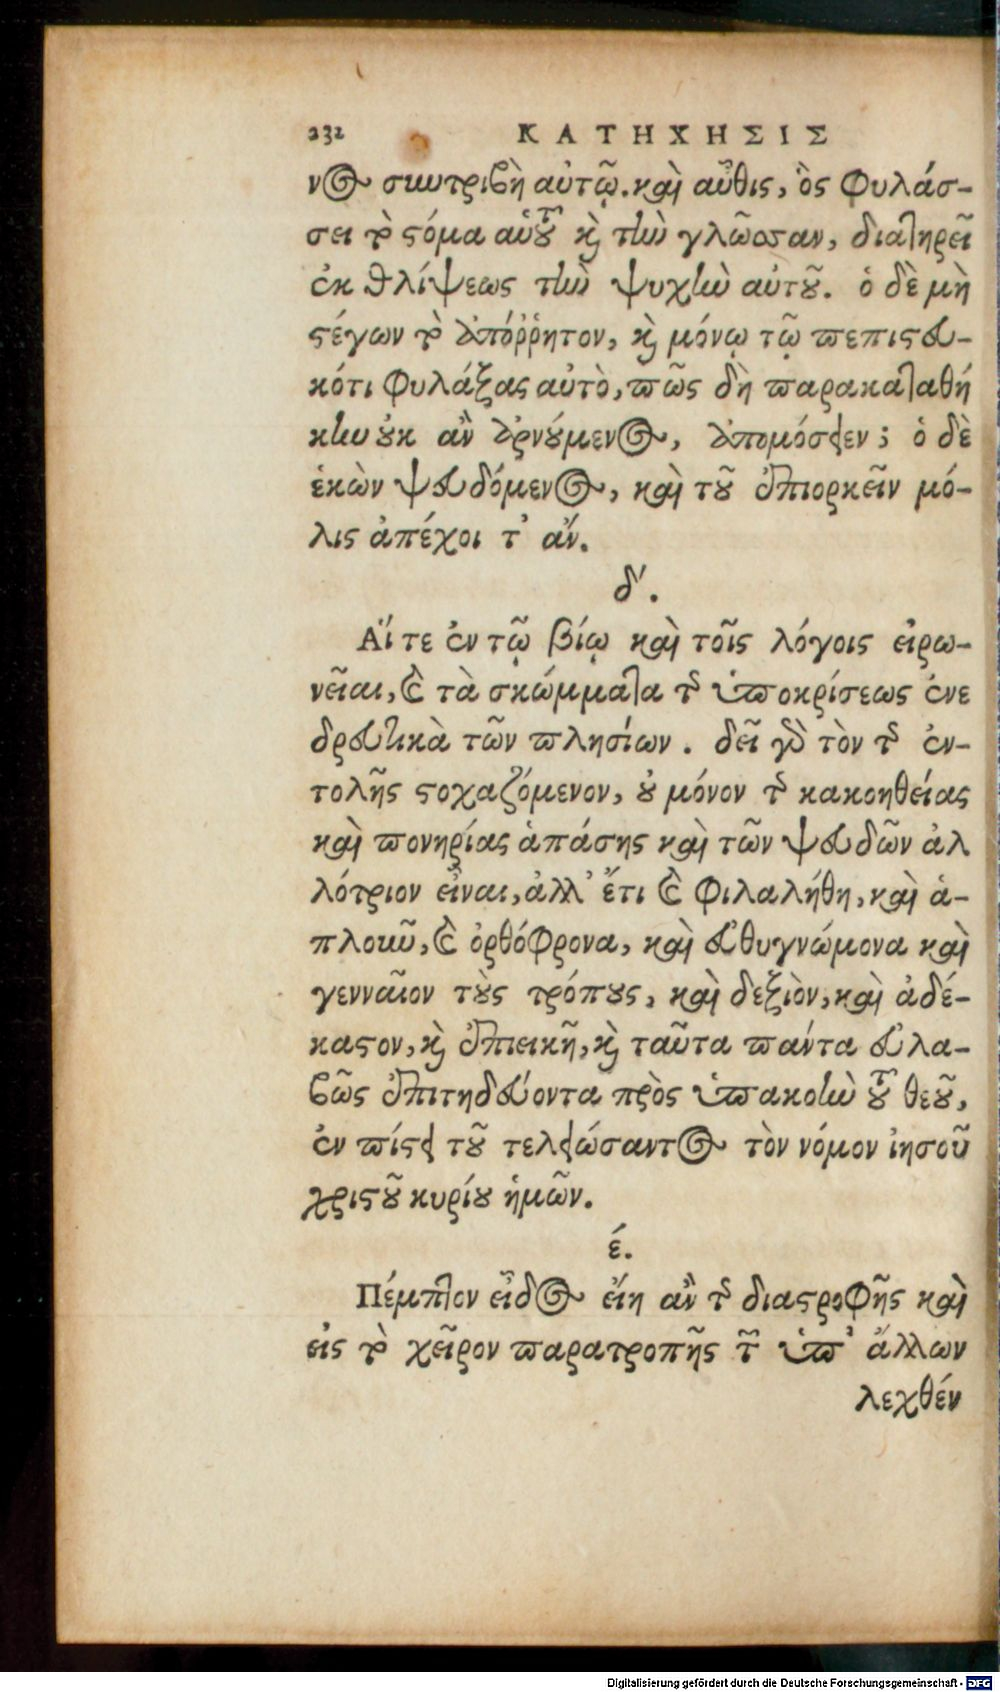 232 ΚΑΤΗΧΗΣΙΣ
νος συντριβὴ αὐτῷ. καὶ αὖθις, ὃς φυλάσ-
σει τὸ στόμα αὑτοῦ καὶ τὴν γλῶσσαν, διατηρεῖ
ἐκ θλίψεως τὴν ψυχὴν αὐτοῦ. ὁ δὲ μὴ
στέγων τὸ ἀπόῤῥητον, καὶ μόνῳ τῷ πεπιστευ-
κότι φυλάξας αὐτὸ, πῶς δὴ παρακαταθή
κην οὐκ ἂν ἀρνούμενος, ἀπομόσειεν; ὁ δὲ
ἑκὼν ψευδόμενος, καὶ τοῦ ἐπιορκεῖν μό-
λις ἀπέχοι τ' ἄν.
δ'.
Αἵ τε ἐν τῷ βίῳ καὶ τοῖς λόγοις εἰρω-
νεῖαι, καὶ τὰ σκώμματα τῆς ὑποκρίσεως ἐνε
δρευτικὰ τῶν πλησίων. δεῖ γὰρ τὸν τῆς ἐν-
τολῆς στοχαζόμενον, οὐ μόνον τῆς κακοηθείας
καὶ πονηρίας ἁπάσης καὶ τῶν ψευδῶν ἀλ
λότριον εἶναι, ἀλλ' ἔτι καὶ φιλαλήθη, καὶ ἁ-
πλοικῦ, καὶ ὀρθόφρονα, καὶ εὐθυγνώμονα καὶ
γενναῖον τοὺς τρόπους, καὶ δεξιὸν, καὶ ἀδέ-
καστον, καὶ ἐπιεικῆ, καὶ ταῦτα πάντα εὐλα-
βῶς ἐπιτηδεύοντα πρὸς ὑπακοὴν τοῦ θεοῦ,
ἐν πίστει τοῦ τελειώσαντος τὸν νόμον ἰησοῦ
χριστοῦ κυρίου ἡμῶν.
έ.
Πέμπτον εἶδος εἴη ἂν τῆς διαστροφῆς καὶ
εἰς τὸ χεῖρον παρατροπῆς τῶν ὑπ' ἄλλων
λεχθέν
Digitalisierung gefördert durch die Deutsche Forschungsgemeinschaft - DFG